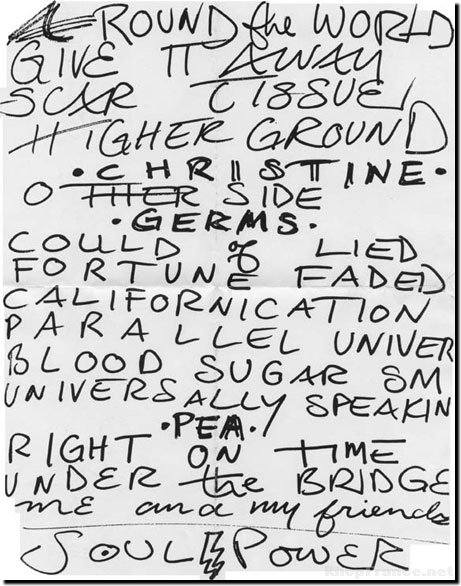 A ROUND the WORLD
GIVE IT AWAY
SCAR TISSUE
HIGHER GROUND
• CHRISTINE •
O THER SIDE
• GERMS •
COULD of LIED
FORTUNE FADED
CALIFORNICATION
PARALLEL UNIVER
BLOOD SUGAR SM
UNIVERSALLY SPEAKIN
• PEA •
RIGHT ON TIME
UNDER the BRIDGE
me and my friends
SOUL POWER